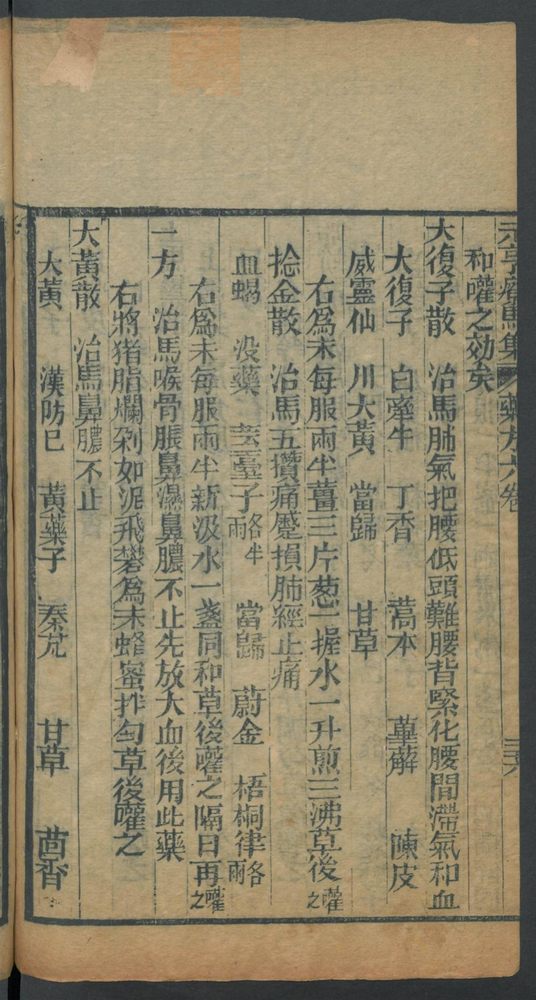 元亨療馬集 藥方六卷 三六
和嚾之効矣
大復子散 治馬肺氣把腰低頭難腰背緊化腰間滯氣和血
大復子 白牽牛 丁香 蒿本 萆薢 陳皮
威靈仙 川大黃 當歸 甘草
右爲末每服兩半薑三片葱一握水一升煎三沸草後嚾之
捻金散 治馬五攢痛蹙損肺經止痛
血蝎 没藥 芸薹子各半兩 當歸 蔚金 梧桐律各兩
右爲末每服兩半新汲水一盞同和草後嚾之隔日再嚾之
一方 治馬喉骨脹鼻濕鼻膿不止先放大血後用此藥
右將猪脂爛剁如泥飛礬爲末蜂蜜拌匀草後嚾之
大黃散 治馬鼻膿不止
大黃 漢防巳 黃藥子 秦艽 甘草 茴香